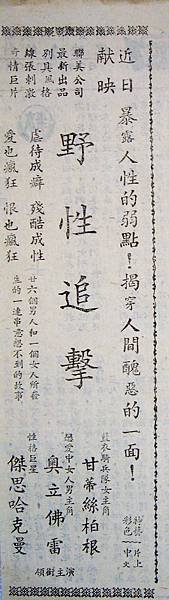 近日獻映
暴露人性的弱點！揭穿人間醜惡的一面！
彩色
片上
中文
野性追擊
聯美公司
最新出品
別具風格
緊張刺激
奇情巨片
虐待成癖 殘酷成性
愛也瘋狂 恨也瘋狂
廿六個男人和一個女人所發
生的一連串意想不到的故事
騎兵隊女主角
甘蒂絲柏根
戀愛中女人男主角
奧立佛雷
性格巨星
傑思哈克曼
領樹主演